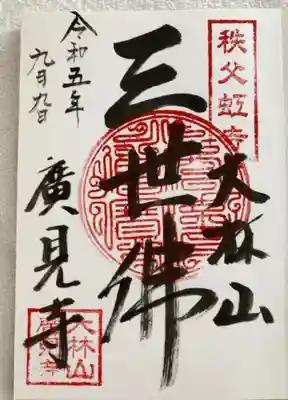 秩父虹寺
大林山
三世佛
廣見寺
大林山
廣見寺
令和五年
九月九日